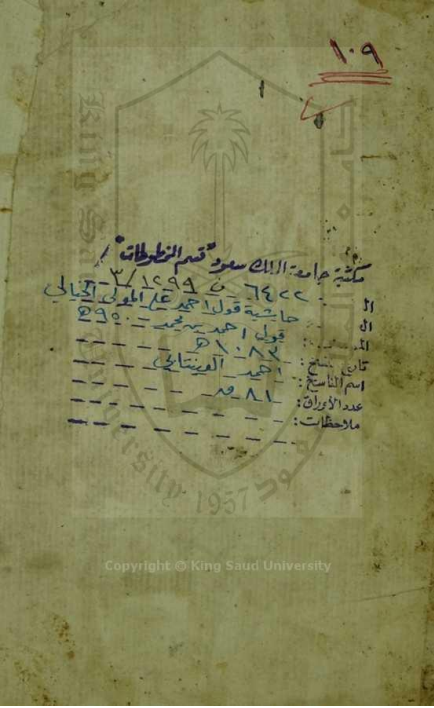 ١٠٩
مكتبة جامعة الملك سعود "قسم المخطوطات"
٦٤٢٢ ف ١٢٩٩/٣
حاشية قول احمد على المولى الخيالي
قول احمد بن محمد ٩٥٠هـ
تاريخ النسخ: ١٠٨٣هـ
اسم الناسخ: احمد العينتابي
عدد الأوراق: ٨١ ق
ملاحظات:
King Saud University
1957
Copyright © King Saud University